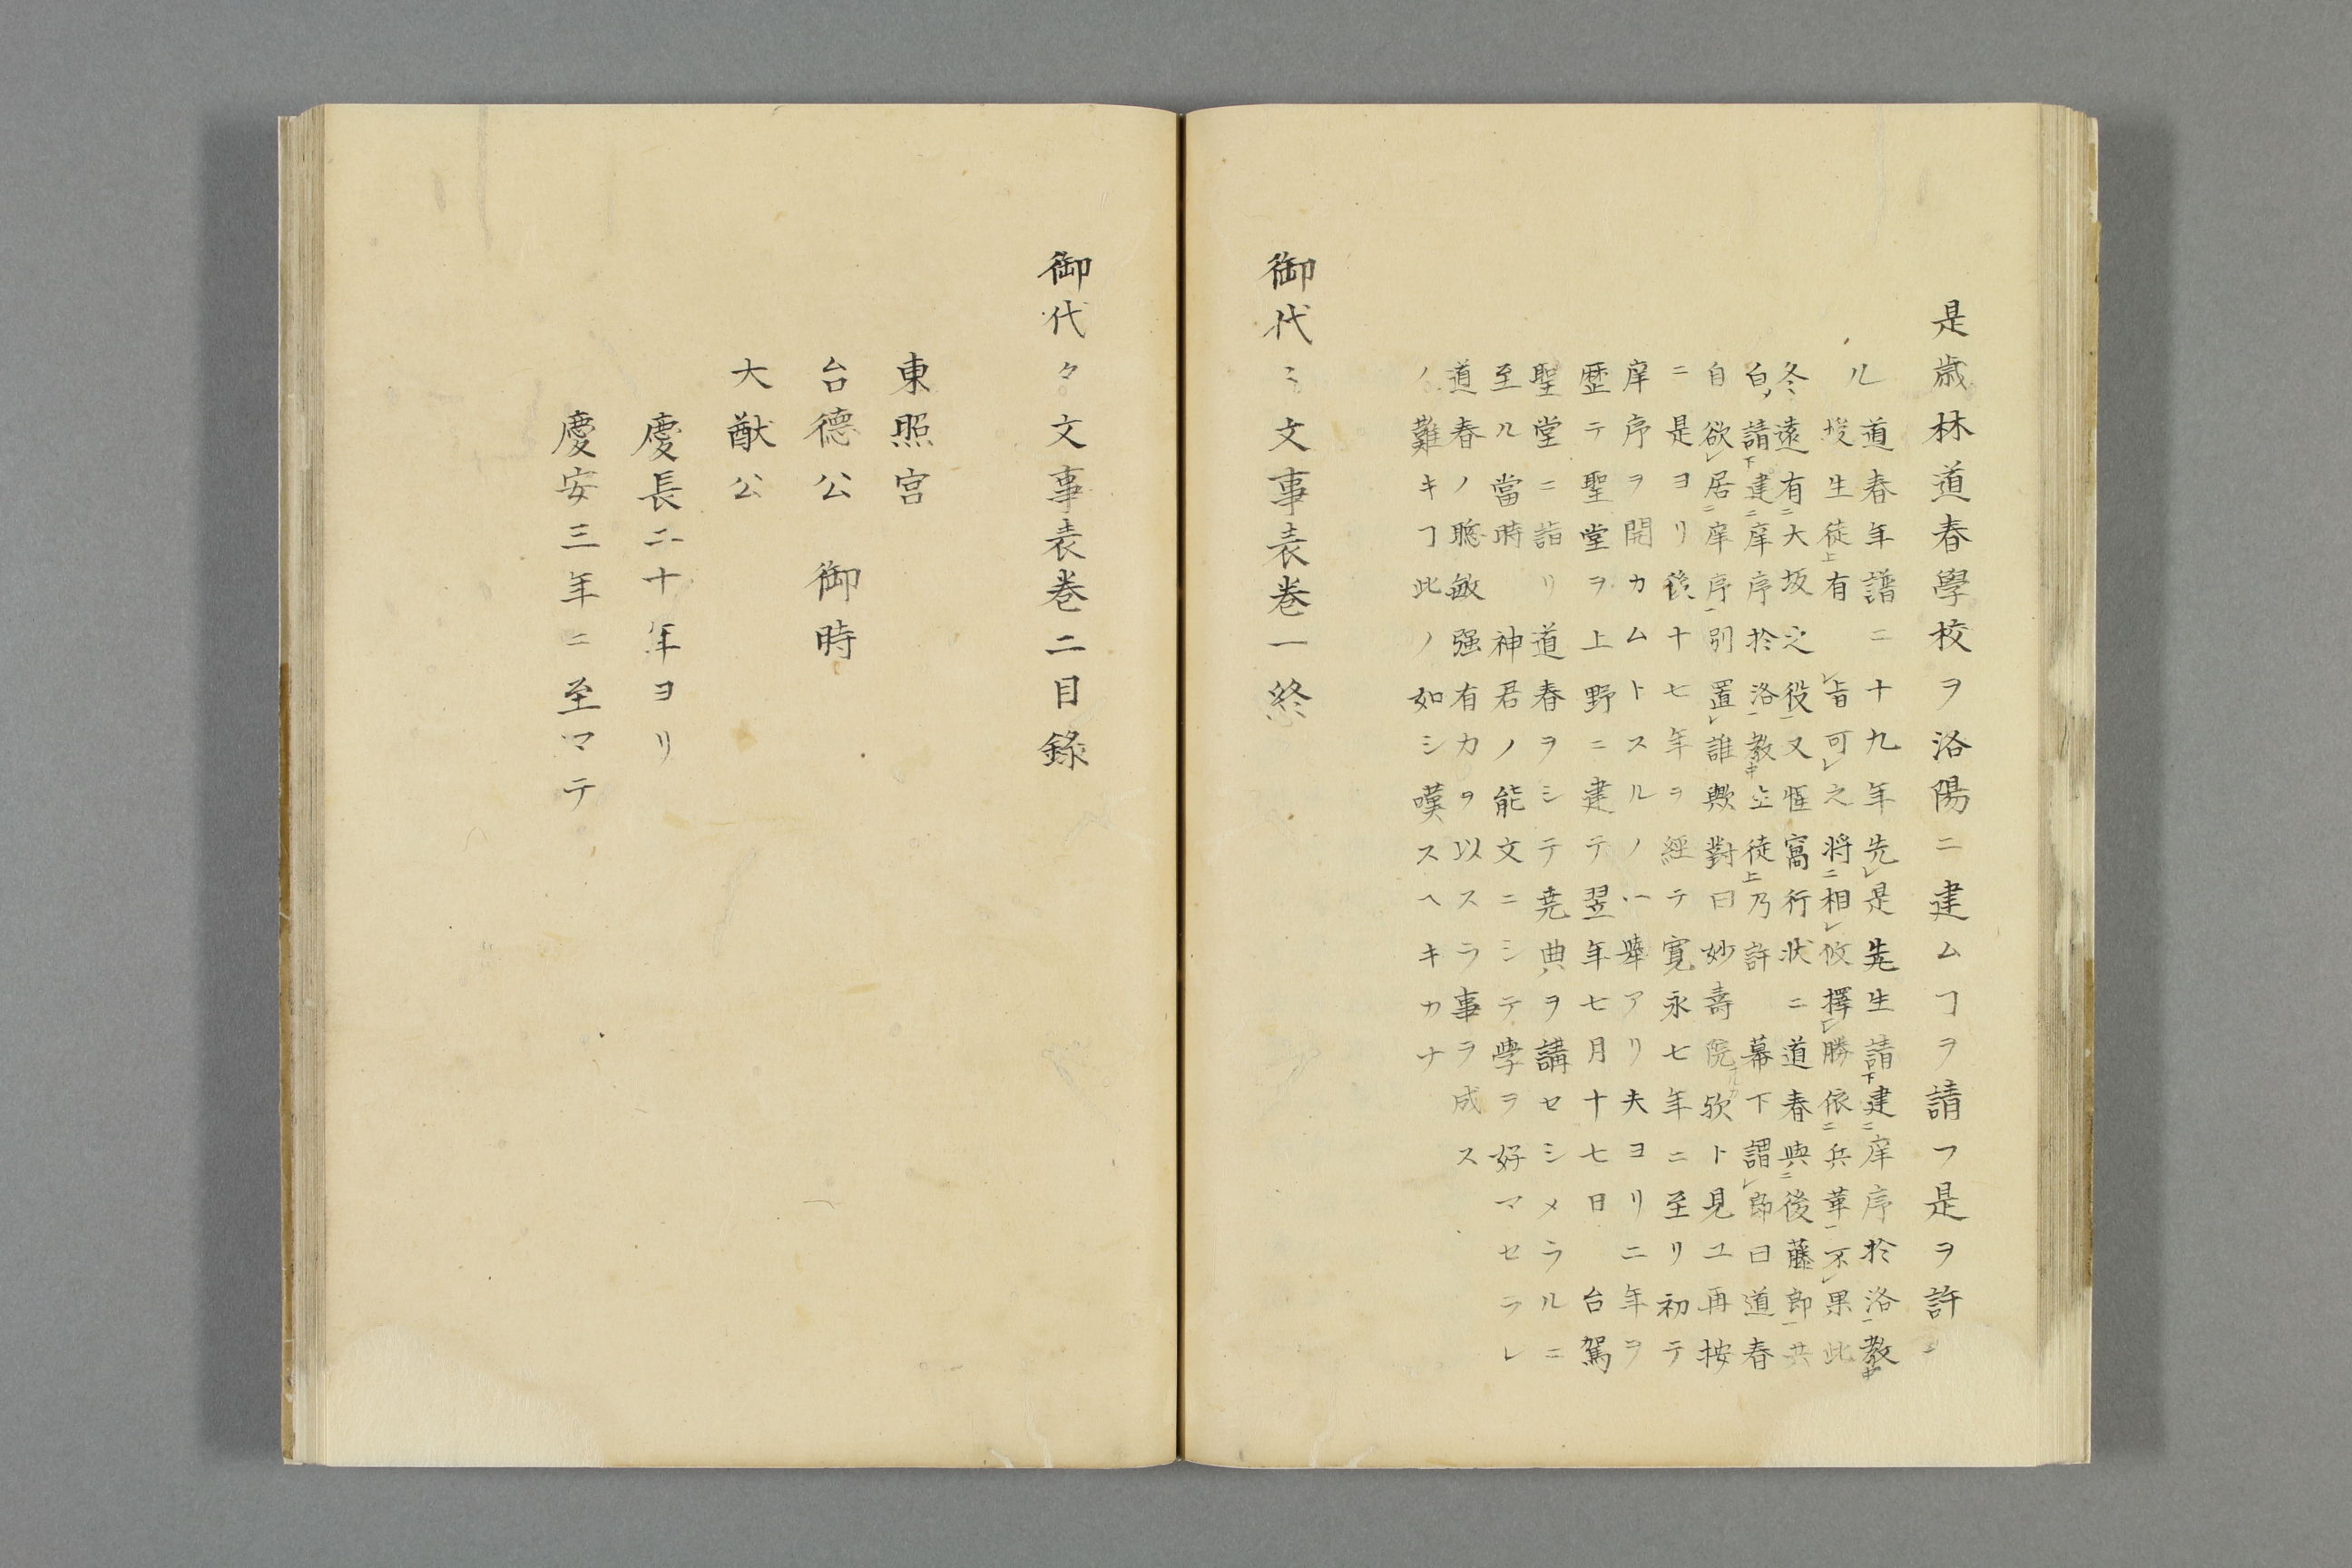 是歳林道春學校ヲ洛陽ニ建ムヿヲ請フ是ヲ許
ル
道春年譜ニ十九年先是先生請建庠序於洛教
授生徒有旨可之将相攸擇勝依兵革不果此
冬遠有大坂之役又惺窩行状ニ道春與後藤郎共
白請建庠序於洛教生徒乃許 幕下謂郎曰道春
自欲居庠序別置誰歟對曰妙壽院欤ト見ユ再按
ニ是ヨリ後十七年ヲ經テ寛永七年ニ至リ初テ
庠序ヲ開カムトスルノ一擧アリ夫ヨリ二年ヲ
歴テ聖堂ヲ上野ニ建テ翌年七月十七日 台駕
聖堂ニ詣リ道春ヲシテ尭典ヲ講セシメラルニ
至ル當時 神君ノ能文ニシテ學ヲ好マセラレ
道春ノ聰敏强有力ヲ以スラ事ヲ成ス
ノ難キヿ此ノ如シ嘆スヘキカナ
御代ミ文事表巻一終
御代々文事表巻二目錄
東照宮
台德公 御時
大猷公
慶長二十年ヨリ
慶安三年ニ至マテ